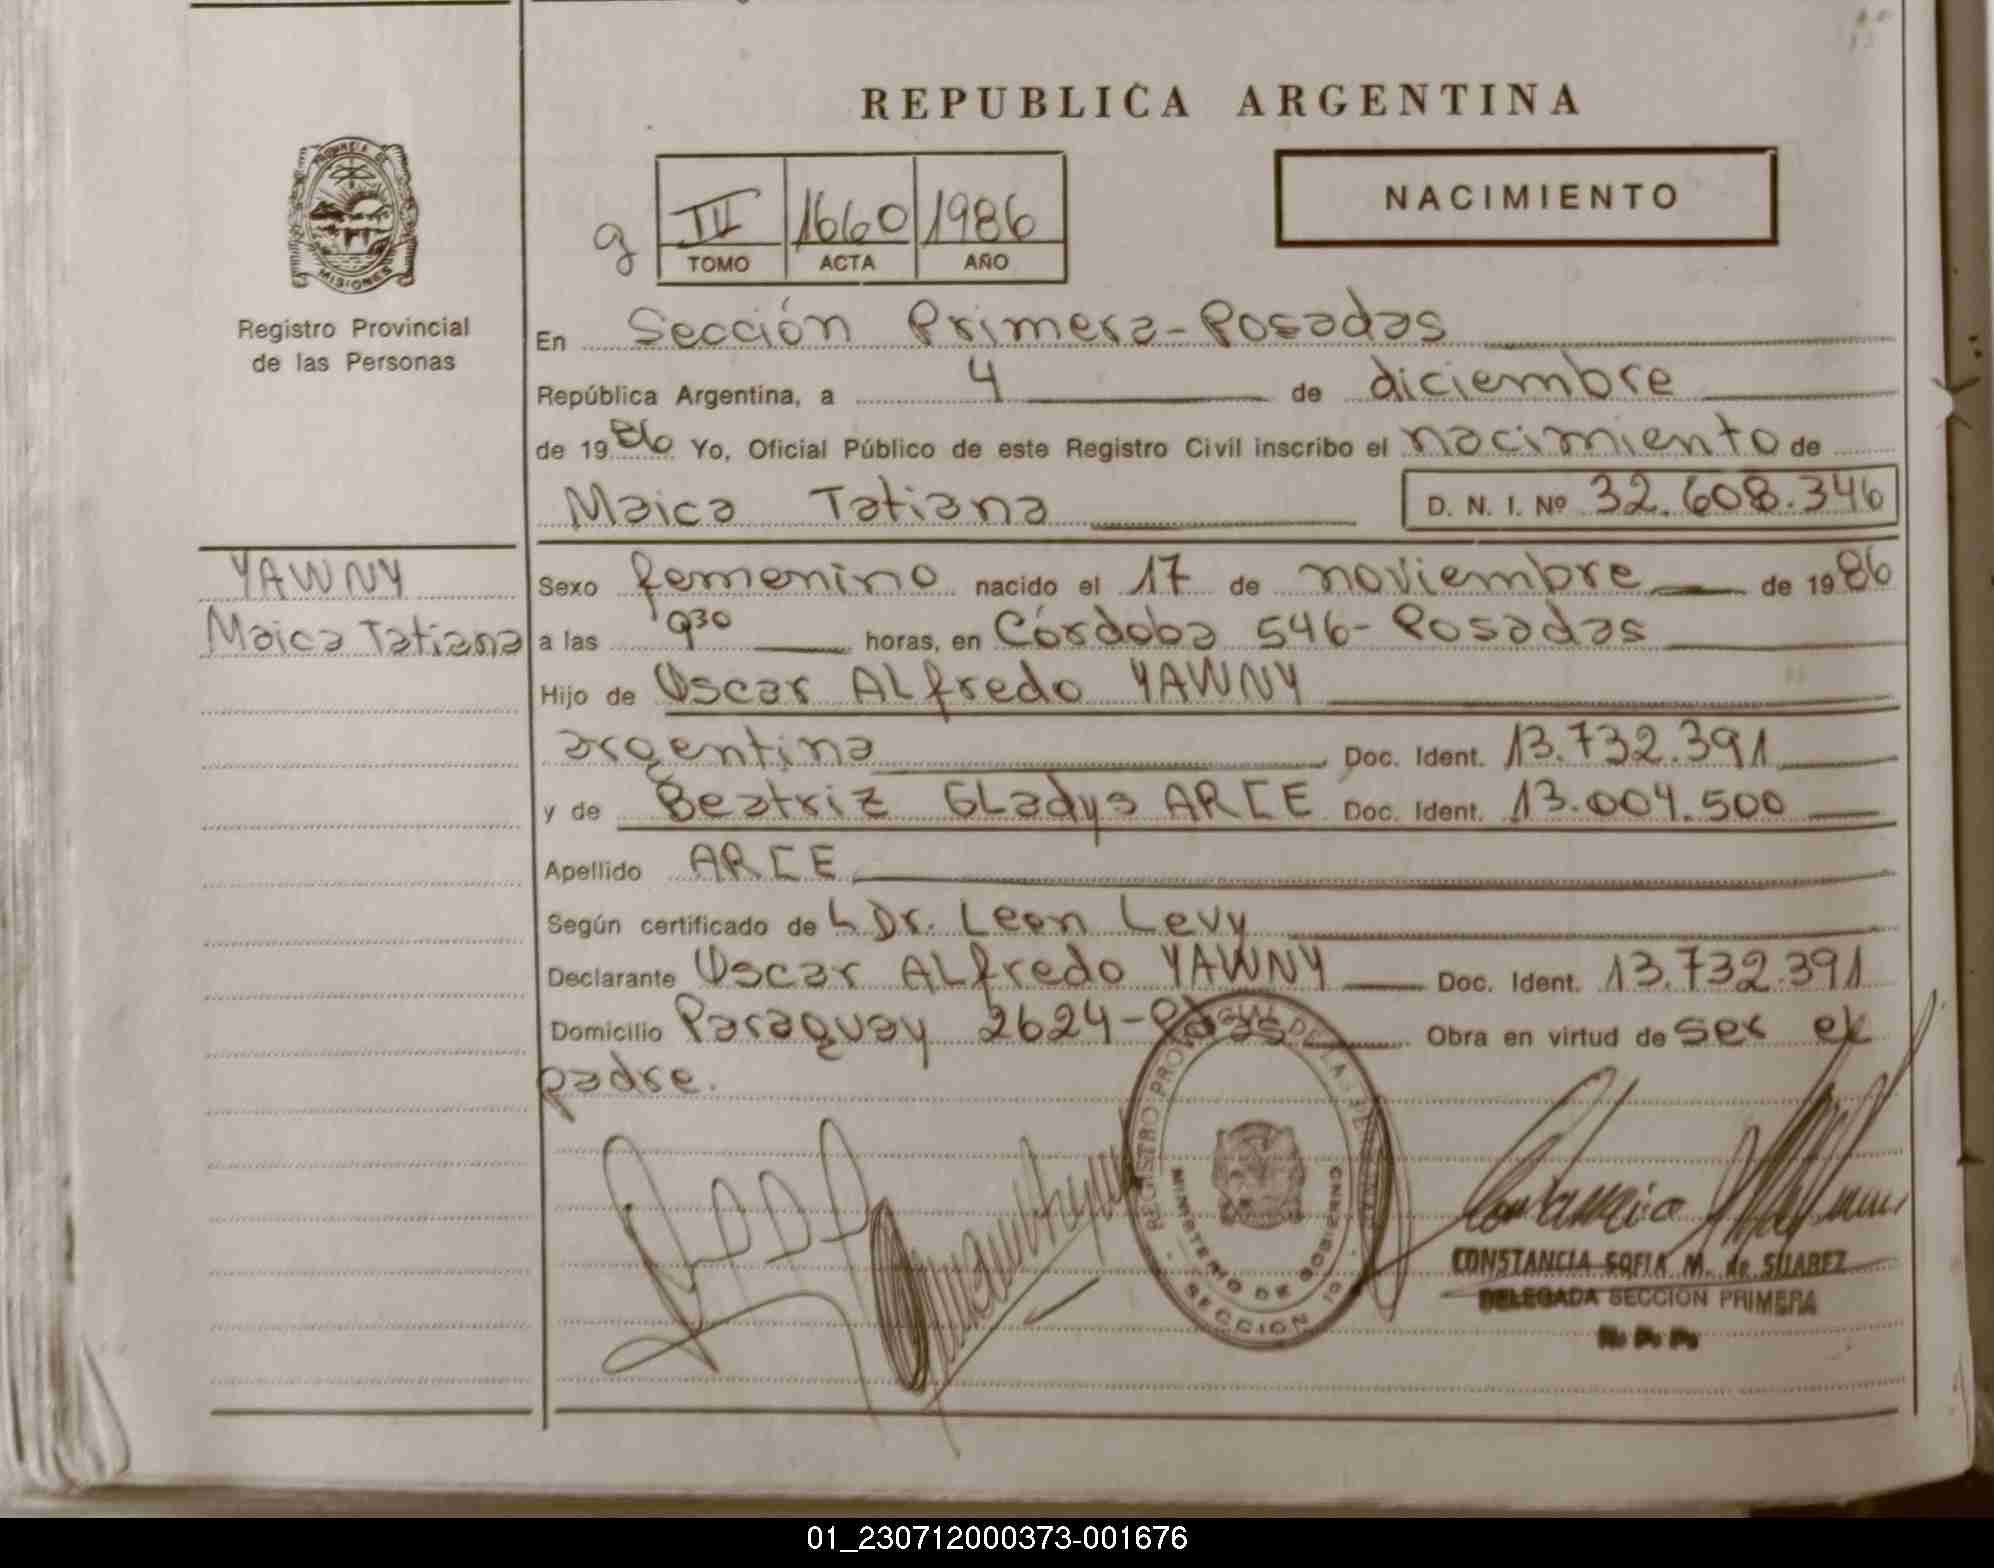 REPUBLICA ARGENTINA
PROVINCIA DE
MISIONES
Registro Provincial
de las Personas
NACIMIENTO
g
1660 1986
TOMO ACTA AÑO
En Sección Primera-Posadas
República Argentina, a 4 de diciembre
de 1986 Yo, Oficial Público de este Registro Civil inscribo el nacimiento de
Maica Tatiana D. N. I. Nº 32.608.346
YAWNY
Maica Tatiana
Sexo femenino nacido el 17 de noviembre de 1986
a las 9³⁰ horas, en Córdoba 546-Posadas
Hijo de Oscar ALfredo YAWNY
argentina Doc. Ident. 13.732.391
y de Beatriz GLadys ARCE Doc. Ident. 13.004.500
Apellido ARCE
Según certificado de L Dr. Leon Levy
Declarante Oscar ALfredo YAWNY Doc. Ident. 13.732.391
Domicilio Paraguay 2624-Pdas Obra en virtud de ser el
padre.
REGISTRO PROVINCIAL DE LAS PERSONAS
MINISTERIO DE GOBIERNO
SECCION 1º
CONSTANCIA SOFIA M. de SUAREZ
DELEGADA SECCION PRIMERA
R. P. P.
01_230712000373-001676